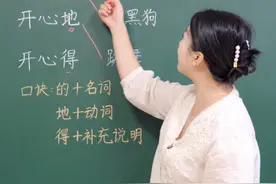 开心地 黑狗
开心得
口诀:的+名词
地+动词
得+补充说明